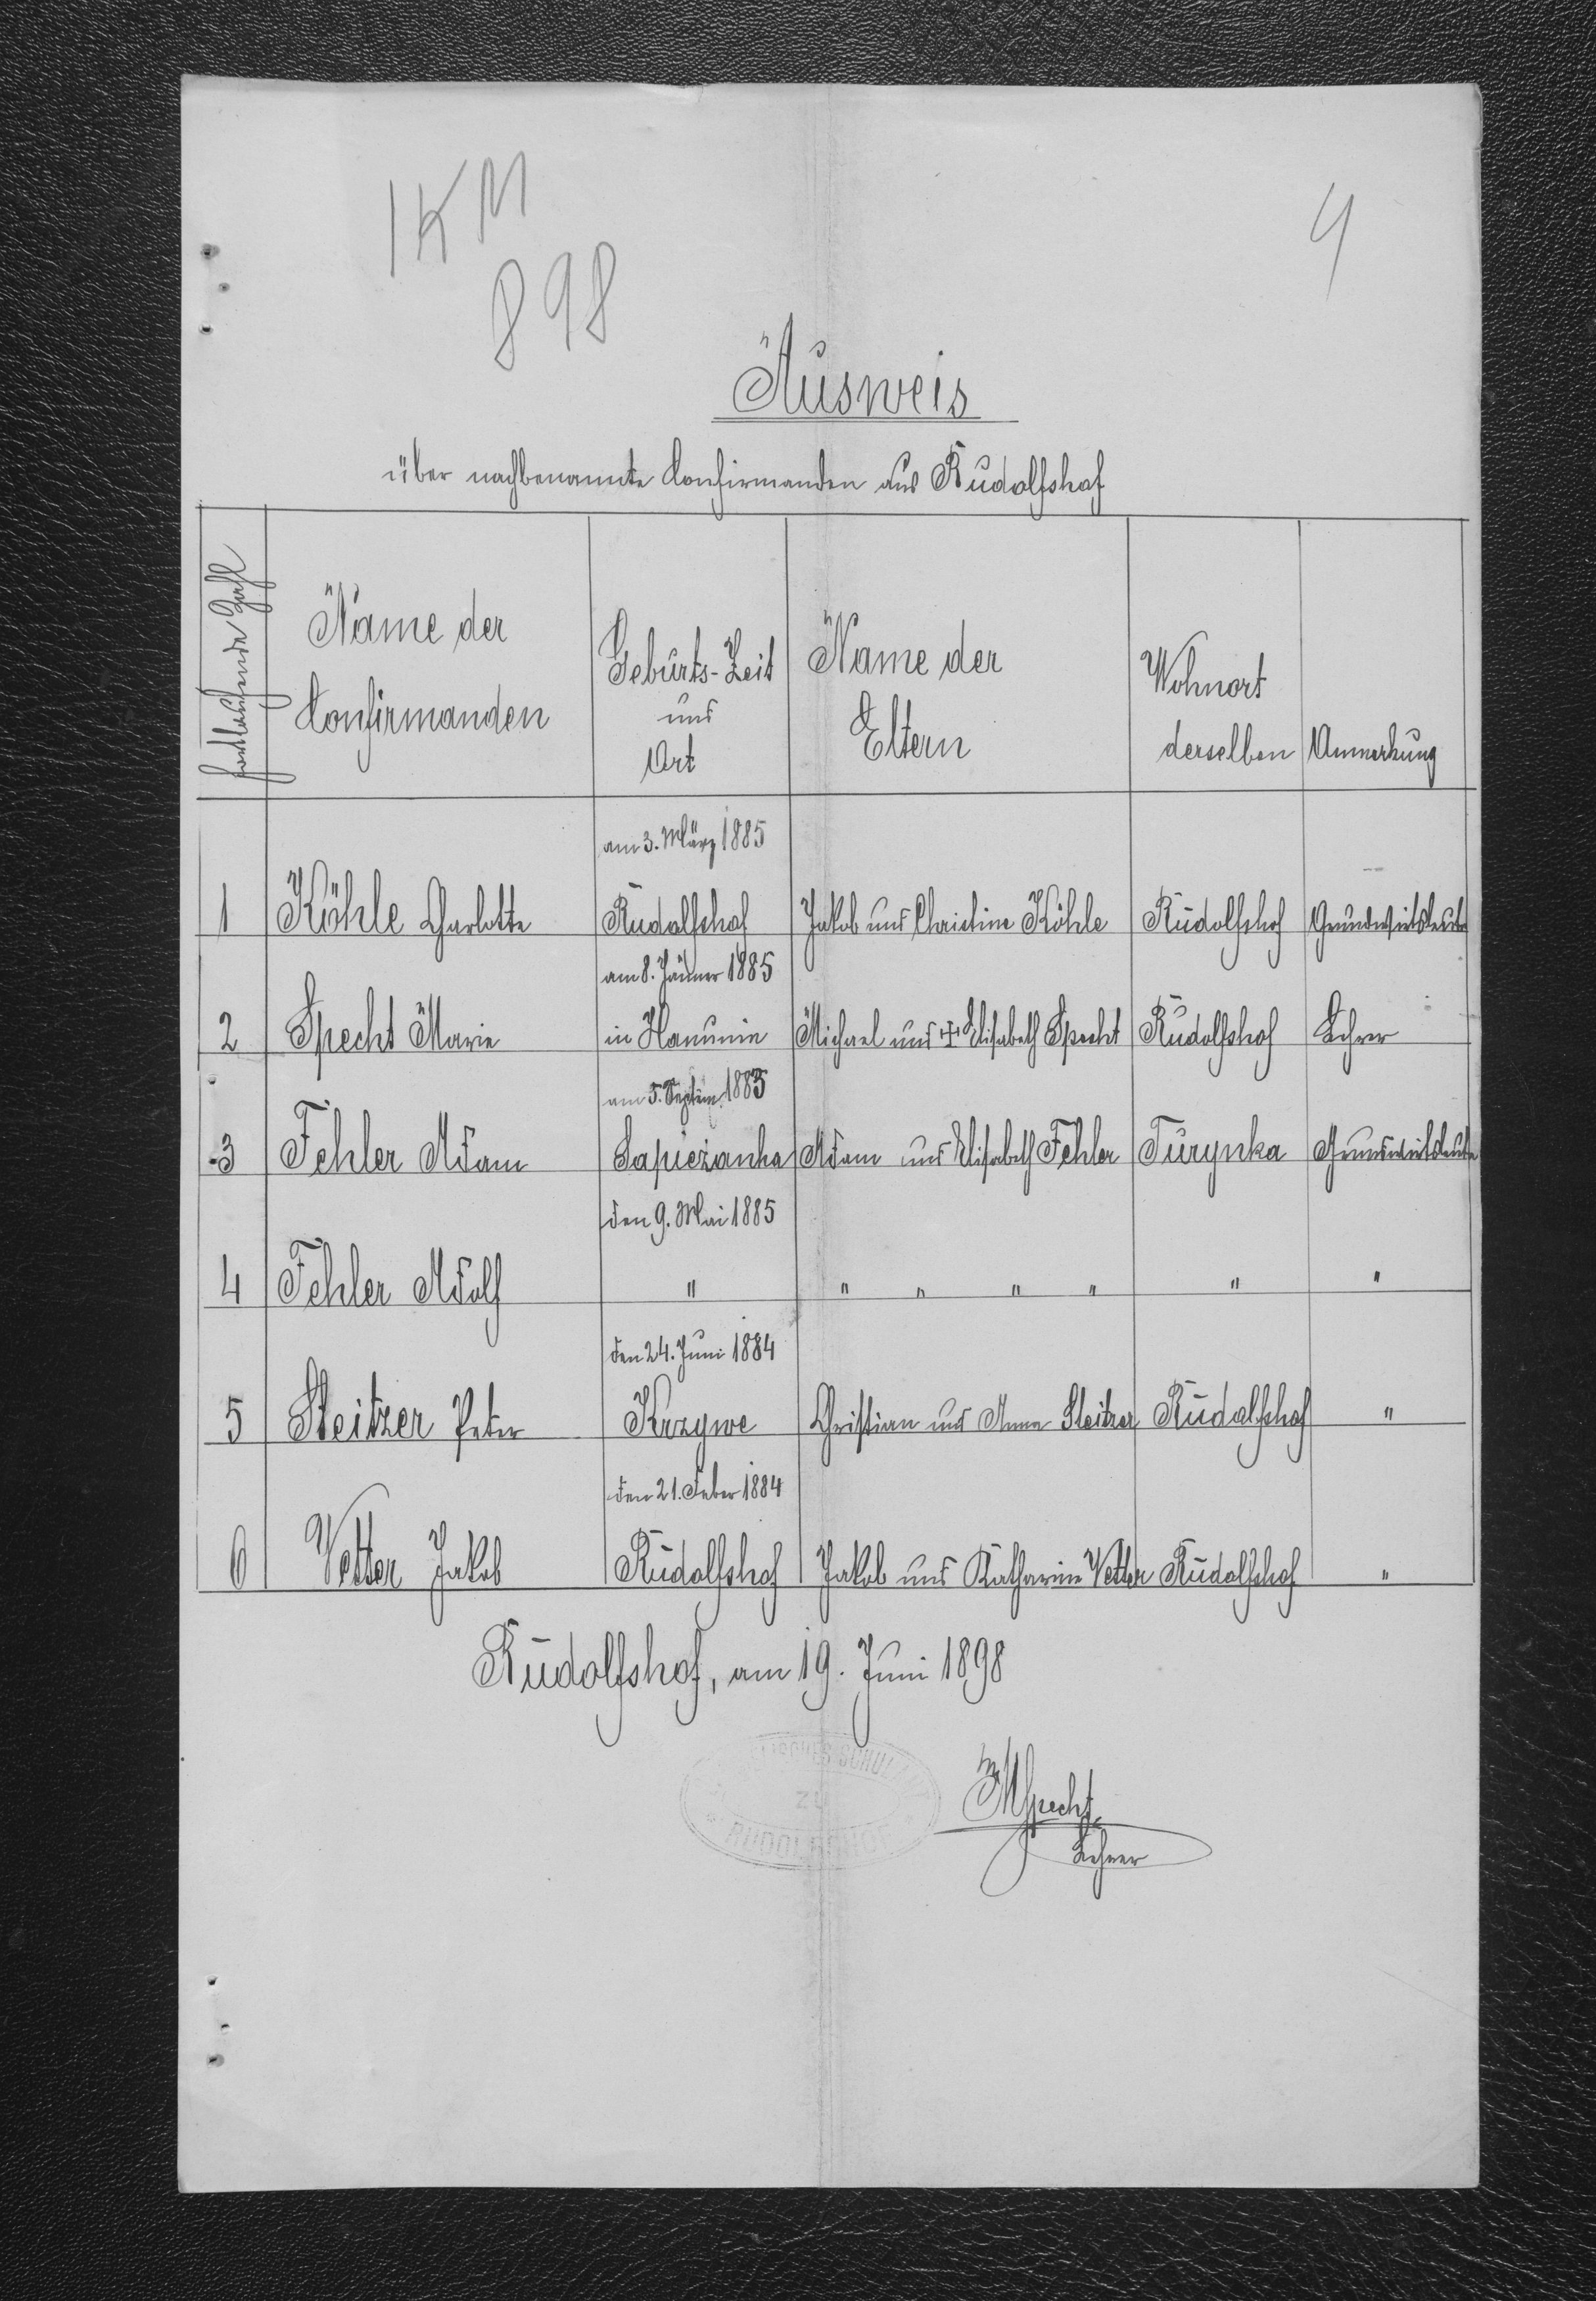 1 K M
898
4
Ausweis
über nachbenannte Confirmanden aus Rudolfshof
fortlaufende Zahl
Name der
Confirmanden
Geburts-Zeit
und
Ort
Name der
Eltern
Wohnort
derselben
Anmerkung
am 3. März 1885
1 Köhle Charlotte Rudolfshof Jakob und Christine Köhle Rudolfshof Grundwirtsleute
am 8. Jänner 1885
2 Specht Marie in Hanunin Michael und ‡ Elisabeth Specht Rudolfshof Lehrer
am 5. Septem. 1883
3 Fehler Adam Sapieżanka Adam und Elisabeth Fehler Turynka Grundwirtsleute
den 9. Mai 1885
4 Fehler Adolf " " " " " " "
den 24. Juni 1884
5 Steitzer Peter Krzywe Christian und Anna Steitzer Rudolfshof "
den 21. Feber 1884
6 Vetter Jakob Rudolfshof Jakob und Katharine Vetter Rudolfshof "
Rudolfshof, am 19. Juni 1898
SCHUL
ZU
RUDOLFSHOF
MSpecht
Lehrer